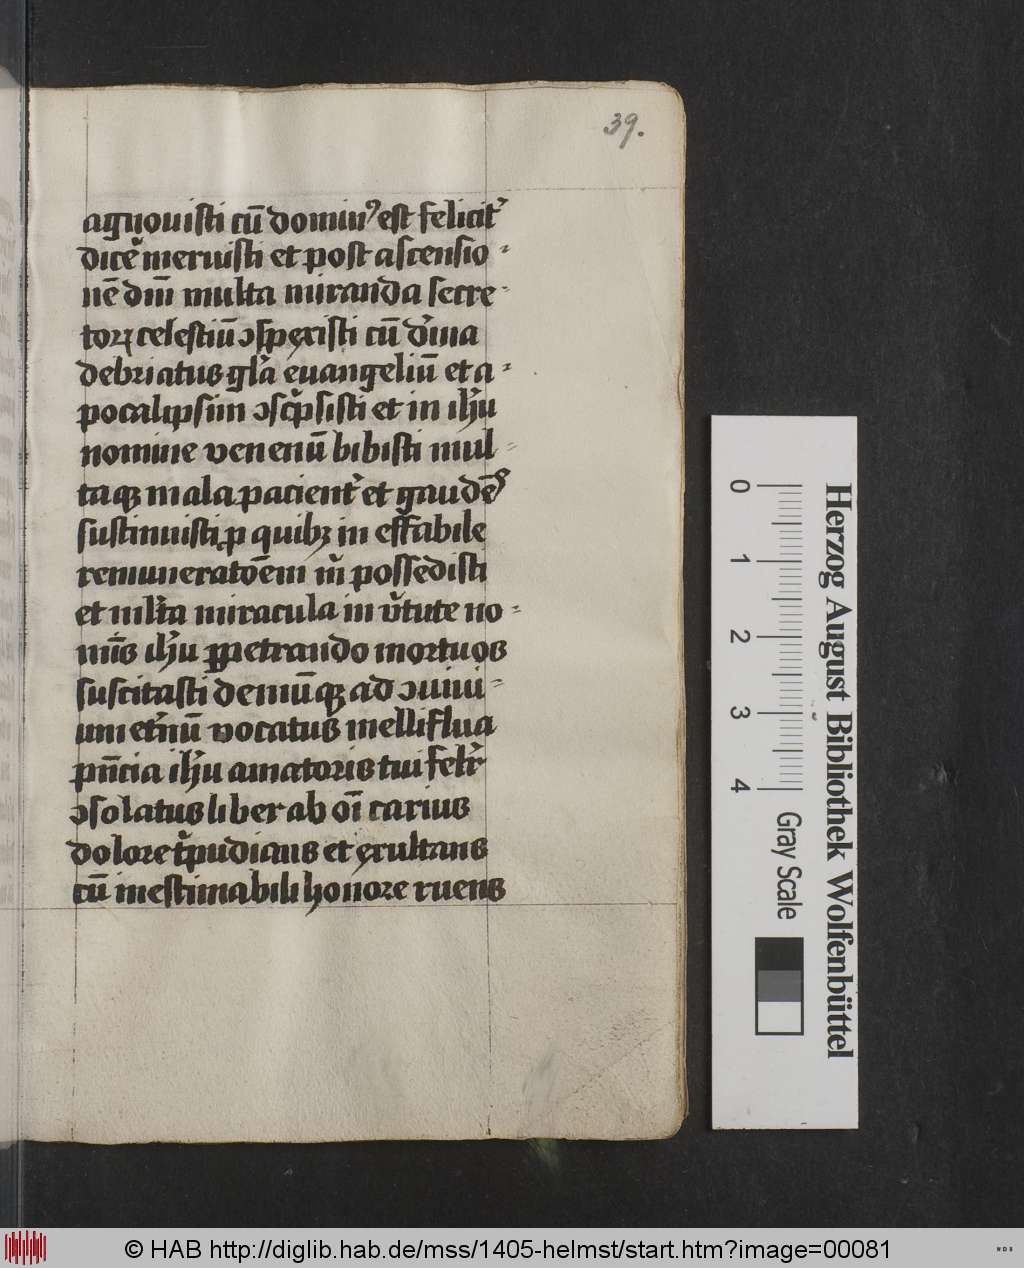 39.
agnouisti cū domin⁹ est felicit᷑
dicē meruisti et post ascensio-
nē dm̄ multa miranda secre-
torꝝ celestiū ↄspexisti cū d'ina
debriatus gl'a euangeliū et a-
pocalipsim ↄsc'psisti et in ihu
nomine venenū bibisti mul-
taqꝫ mala pacient᷑ et gaudēs
sustinuisti p quibꝫ in effabile
remuneratōem possedisti
et ml'ta miracula in v'tute no-
mīs ihu ppetrando mortuos
suscitasti demūqꝫ ad ↄuiui-
um et'nū vocatus melliflua
pn̄cia ihu amatoris tui
ↄsolatus liber ab oī carius
dolore t'pudians et exultans
cū inestimabili honore ruens
Herzog August Bibliothek Wolfenbüttel
0 1 2 3 4 Gray Scale
© HAB http://diglib.hab.de/mss/1405-helmst/start.htm?image=00081